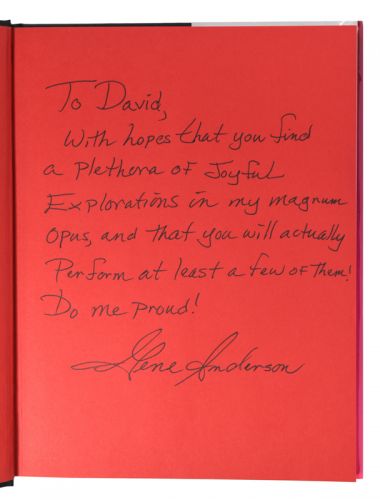 To David,
With hopes that you find
a plethera of Joyful
Explorations in my magnum
opus, and that you will actually
Perform at least a few of them!
Do me proud!
Gene Anderson